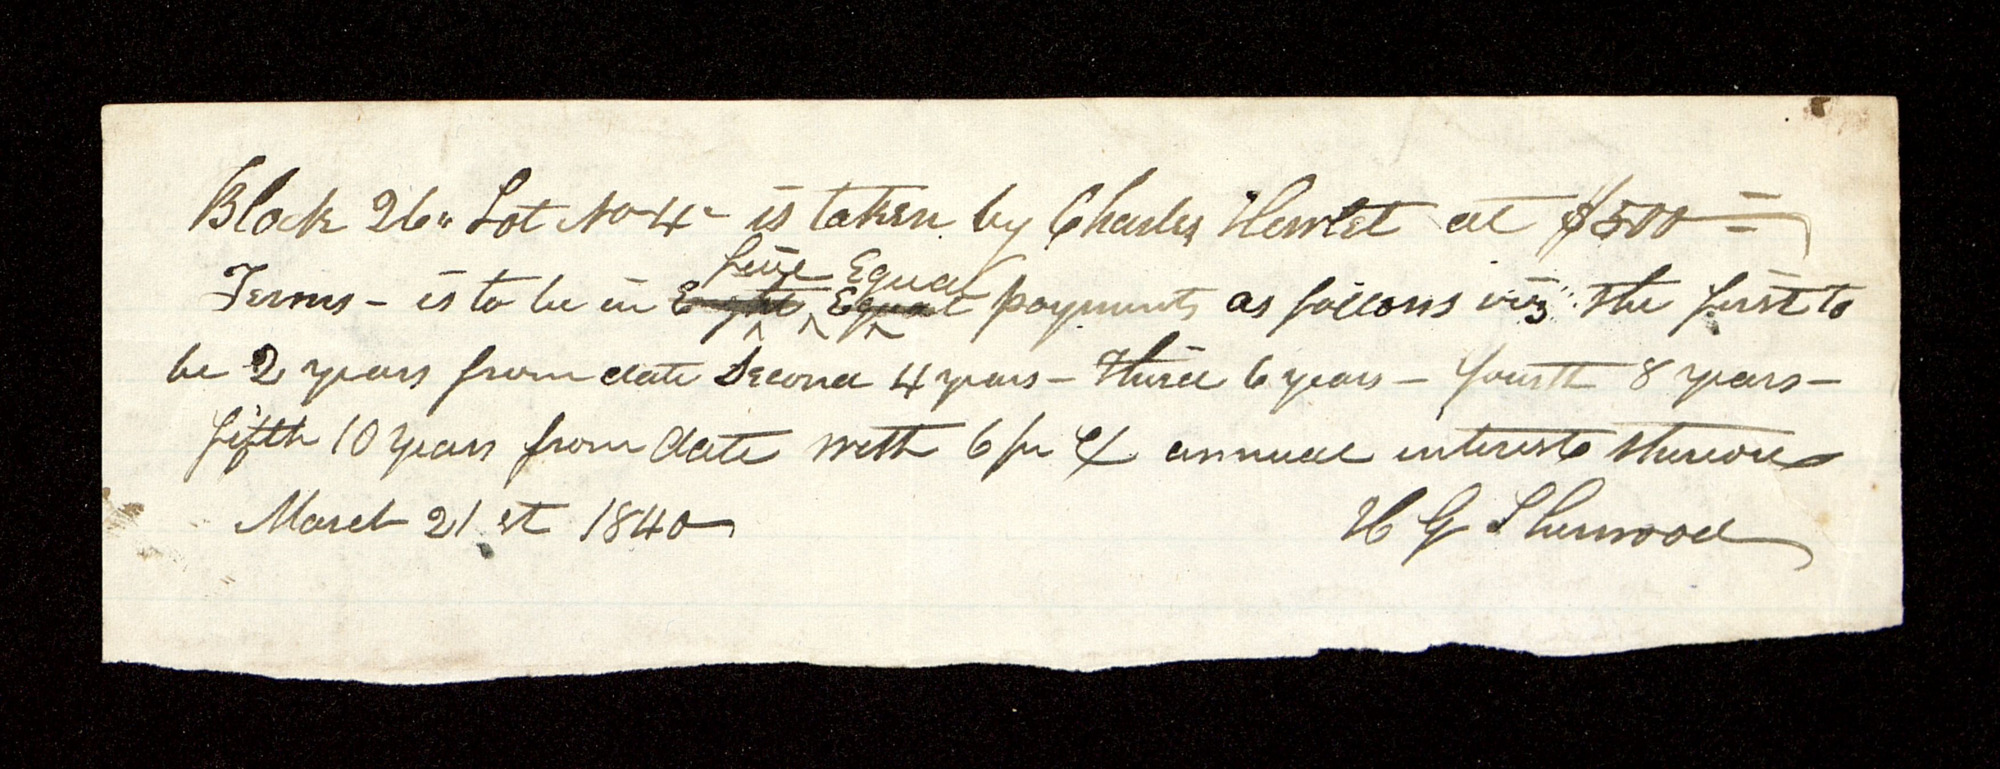 Block 26" Lot No 4- is taken by Charles Hewlet at $500=
five Equal
Terms - is to be in Eight Equal payments as follows viz" the first to
be 2 years from date Second 4 years - third 6 years - fourth 8 years -
fifth 10 years from date with 6 pr Ct annual interest thereon
March 21st 1840
H G Sherwood